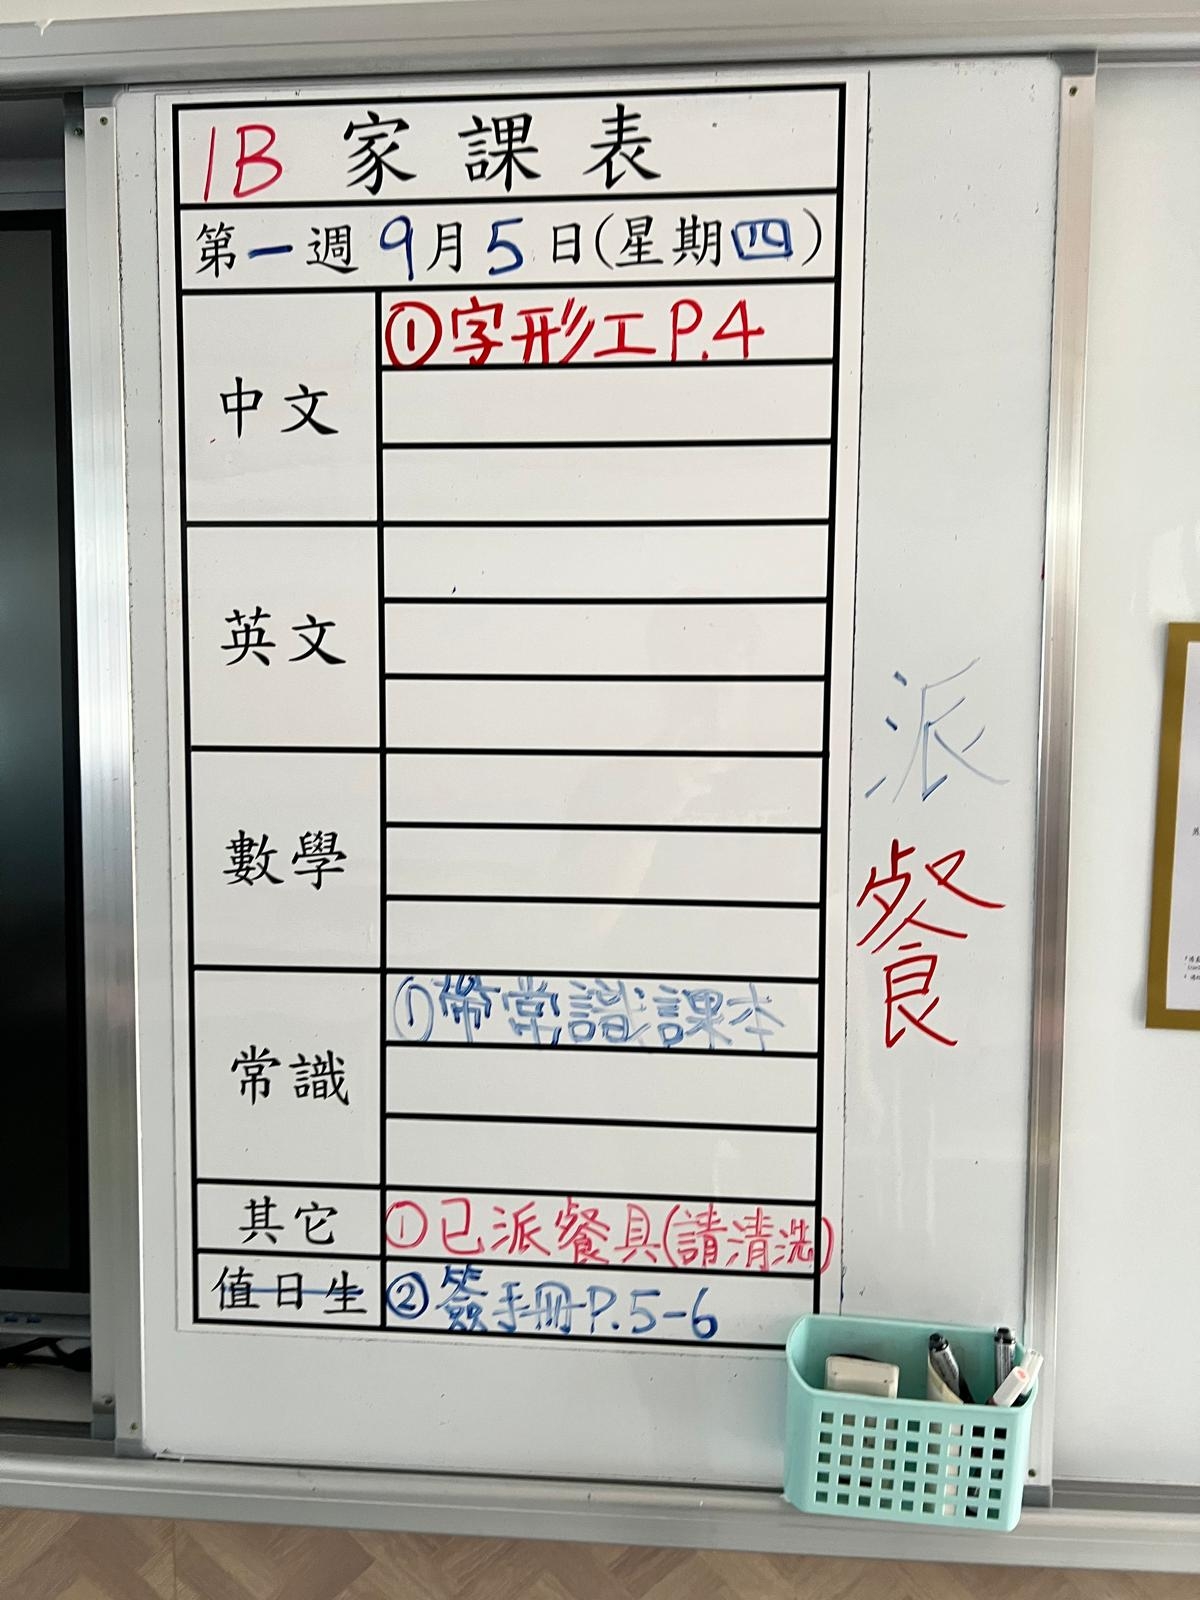 1B 家課表
第一週 9月5日(星期四)
中文
①字形工 P.4
英文
數學
常識
①帶常識課本
其它
①已派餐具(請清洗)
值日生
②簽手冊P.5-6
派
餐